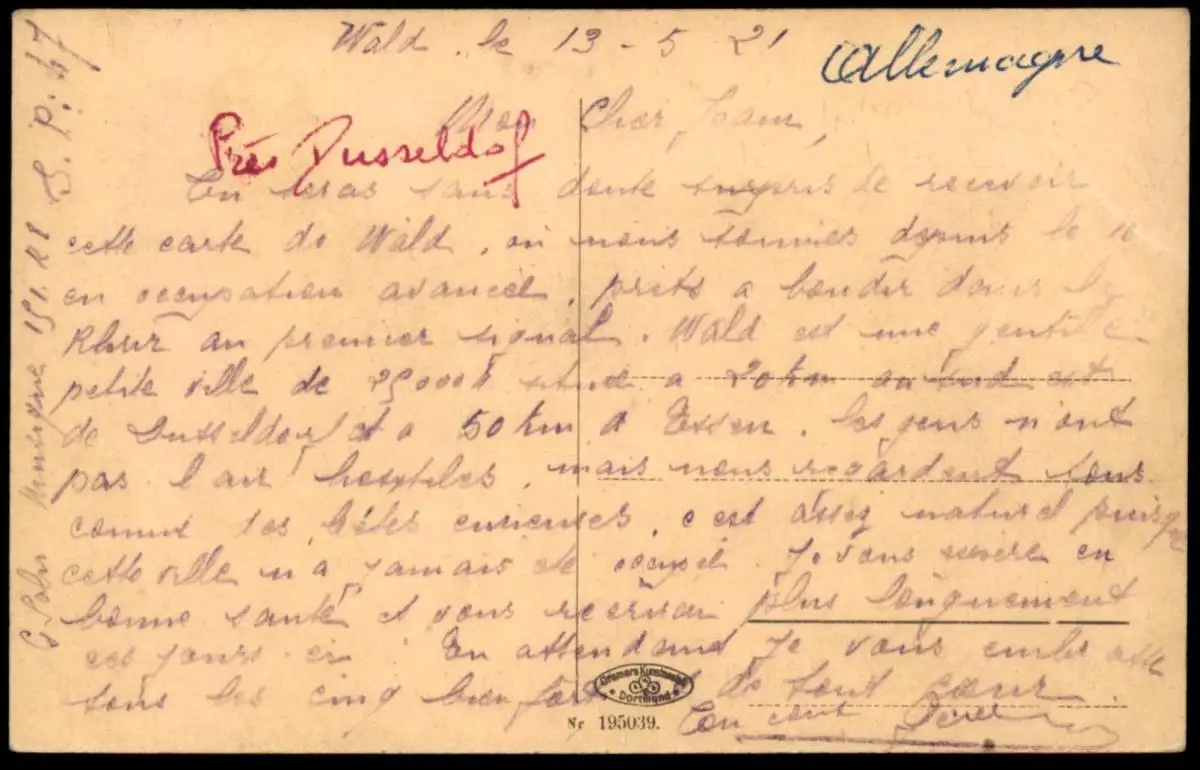 Wald, le 13-5 21
Allemagne
Mon Cher Jeam,
Près Dusseldof
Tu seras sans doute surpris de recevoir
cette carte de Wald, où nous sommes depuis le
en occupation avancée, prêts a bondir dans la
Rhur au premier signal. Wald est une gentille
petite ville de 25000 h située a 20 km au sud est
de Dusseldorf et a 50 km d Essen. les gens n'ont
pas l'air hostiles, mais nous regardent tous
comme des bêtes curieuses, c'est assez naturel puisque
cette ville n'a jamais été occupée. Je vous espère en
bonne santé et vous plus longuement
ces jours-ci. En attendant je vous embrasse
tous les cinq bien fort de tout cœur.
Ton
Musique S.P: 47
Cramers Kunstanstalt
Dortmund
Nr 195039.